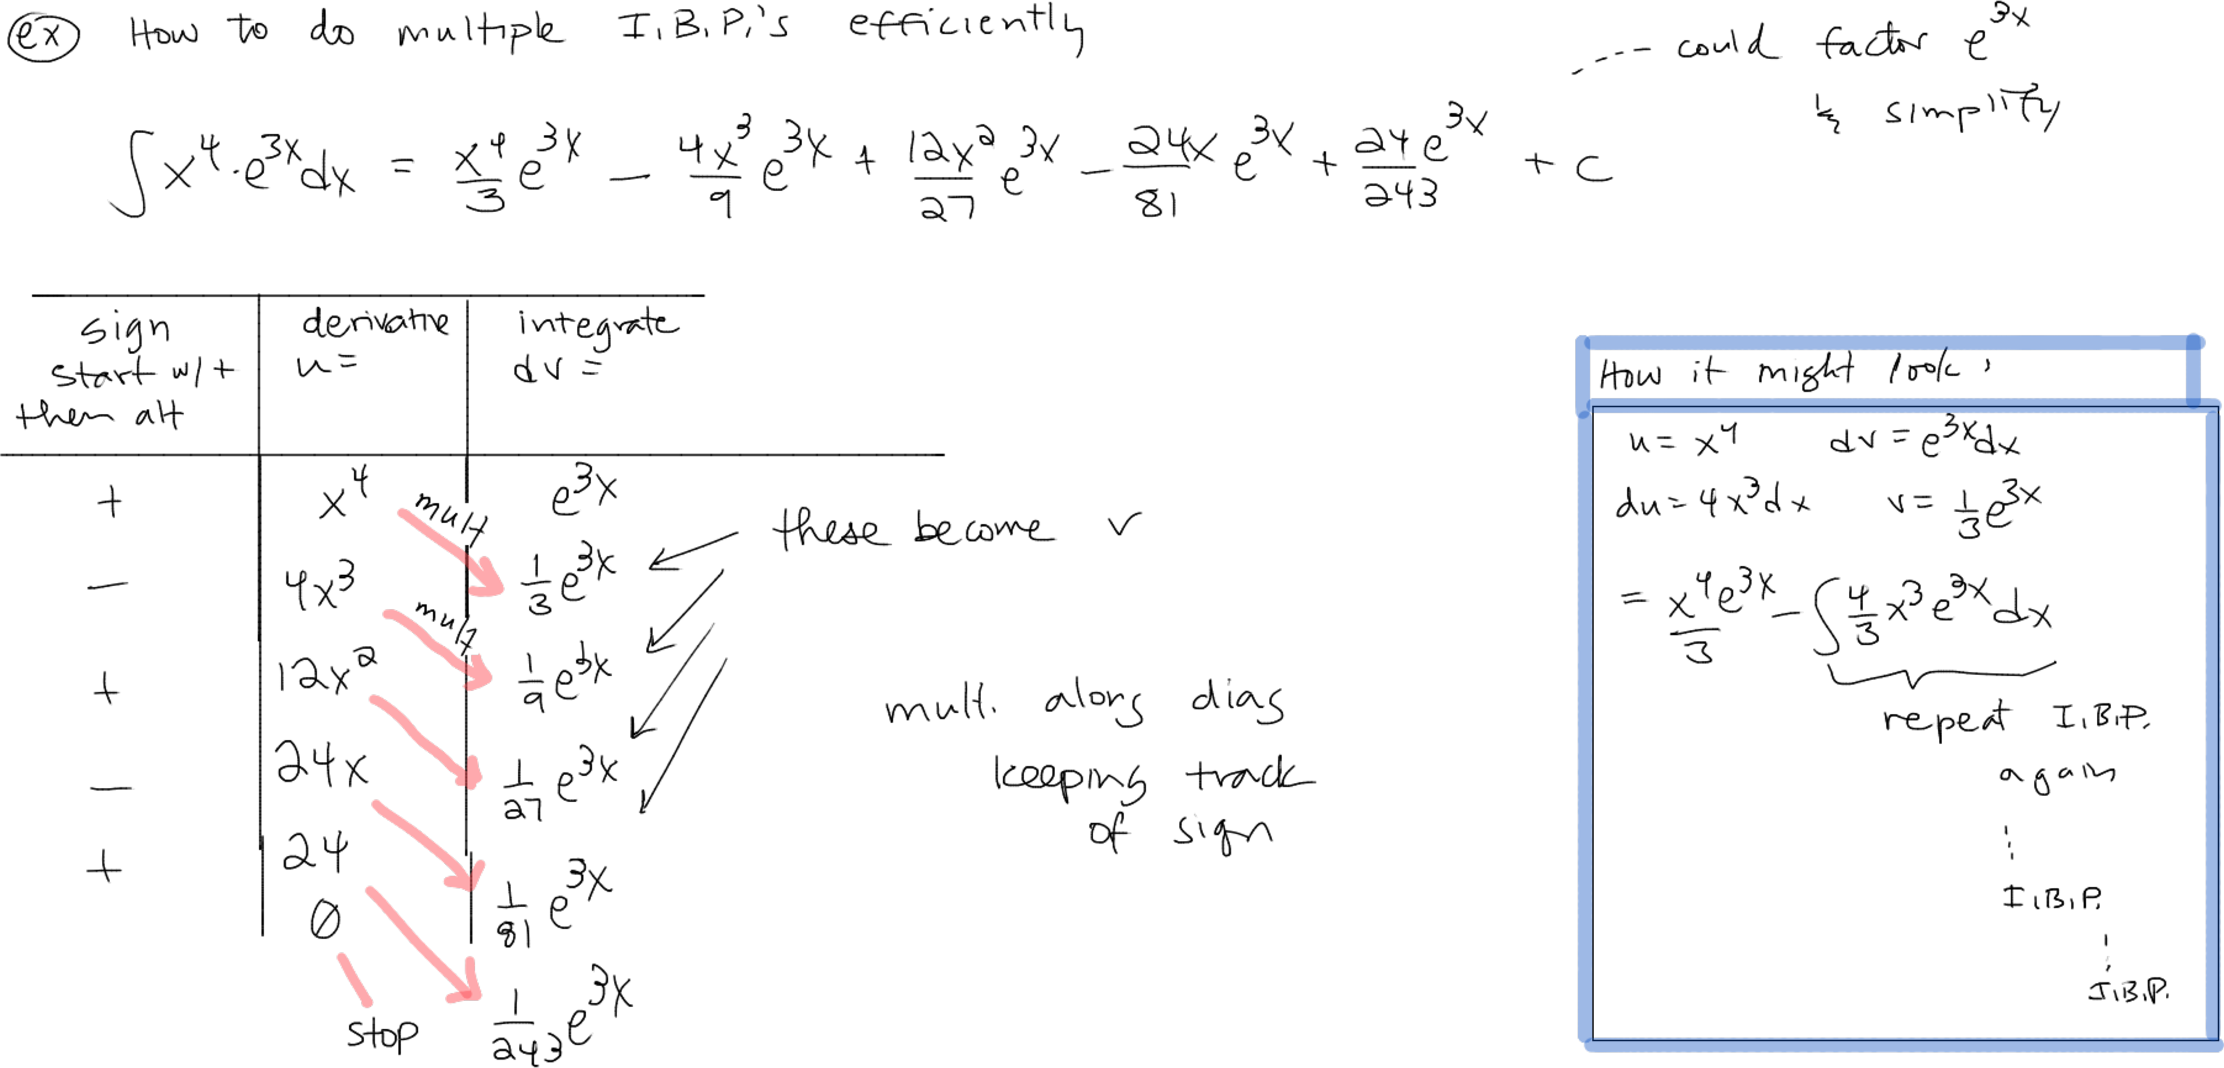 ex How to do multiple I.B.P.'s efficiently
---- could factor e^{3x}
& simplify
∫ x^4 · e^{3x} dx = x^4/3 e^{3x} − 4x^3/9 e^{3x} + 12x^2/27 e^{3x} − 24x/81 e^{3x} + 24e^{3x}/243 + C
sign
start w/ +
then alt
derivative
u =
integrate
dv =
+ x^4 e^{3x}
mult
− 4x^3 1/3 e^{3x}
mult
+ 12x^2 1/9 e^{3x}
− 24x 1/27 e^{3x}
+ 24 1/81 e^{3x}
0 1/243 e^{3x}
stop
these become v
mult. along diag
keeping track
of sign
How it might look:
u = x^4 dv = e^{3x} dx
du = 4x^3 dx v = 1/3 e^{3x}
= x^4 e^{3x}/3 − ∫ 4/3 x^3 e^{3x} dx
repeat I.B.P.
again
I.B.P.
I.B.P.